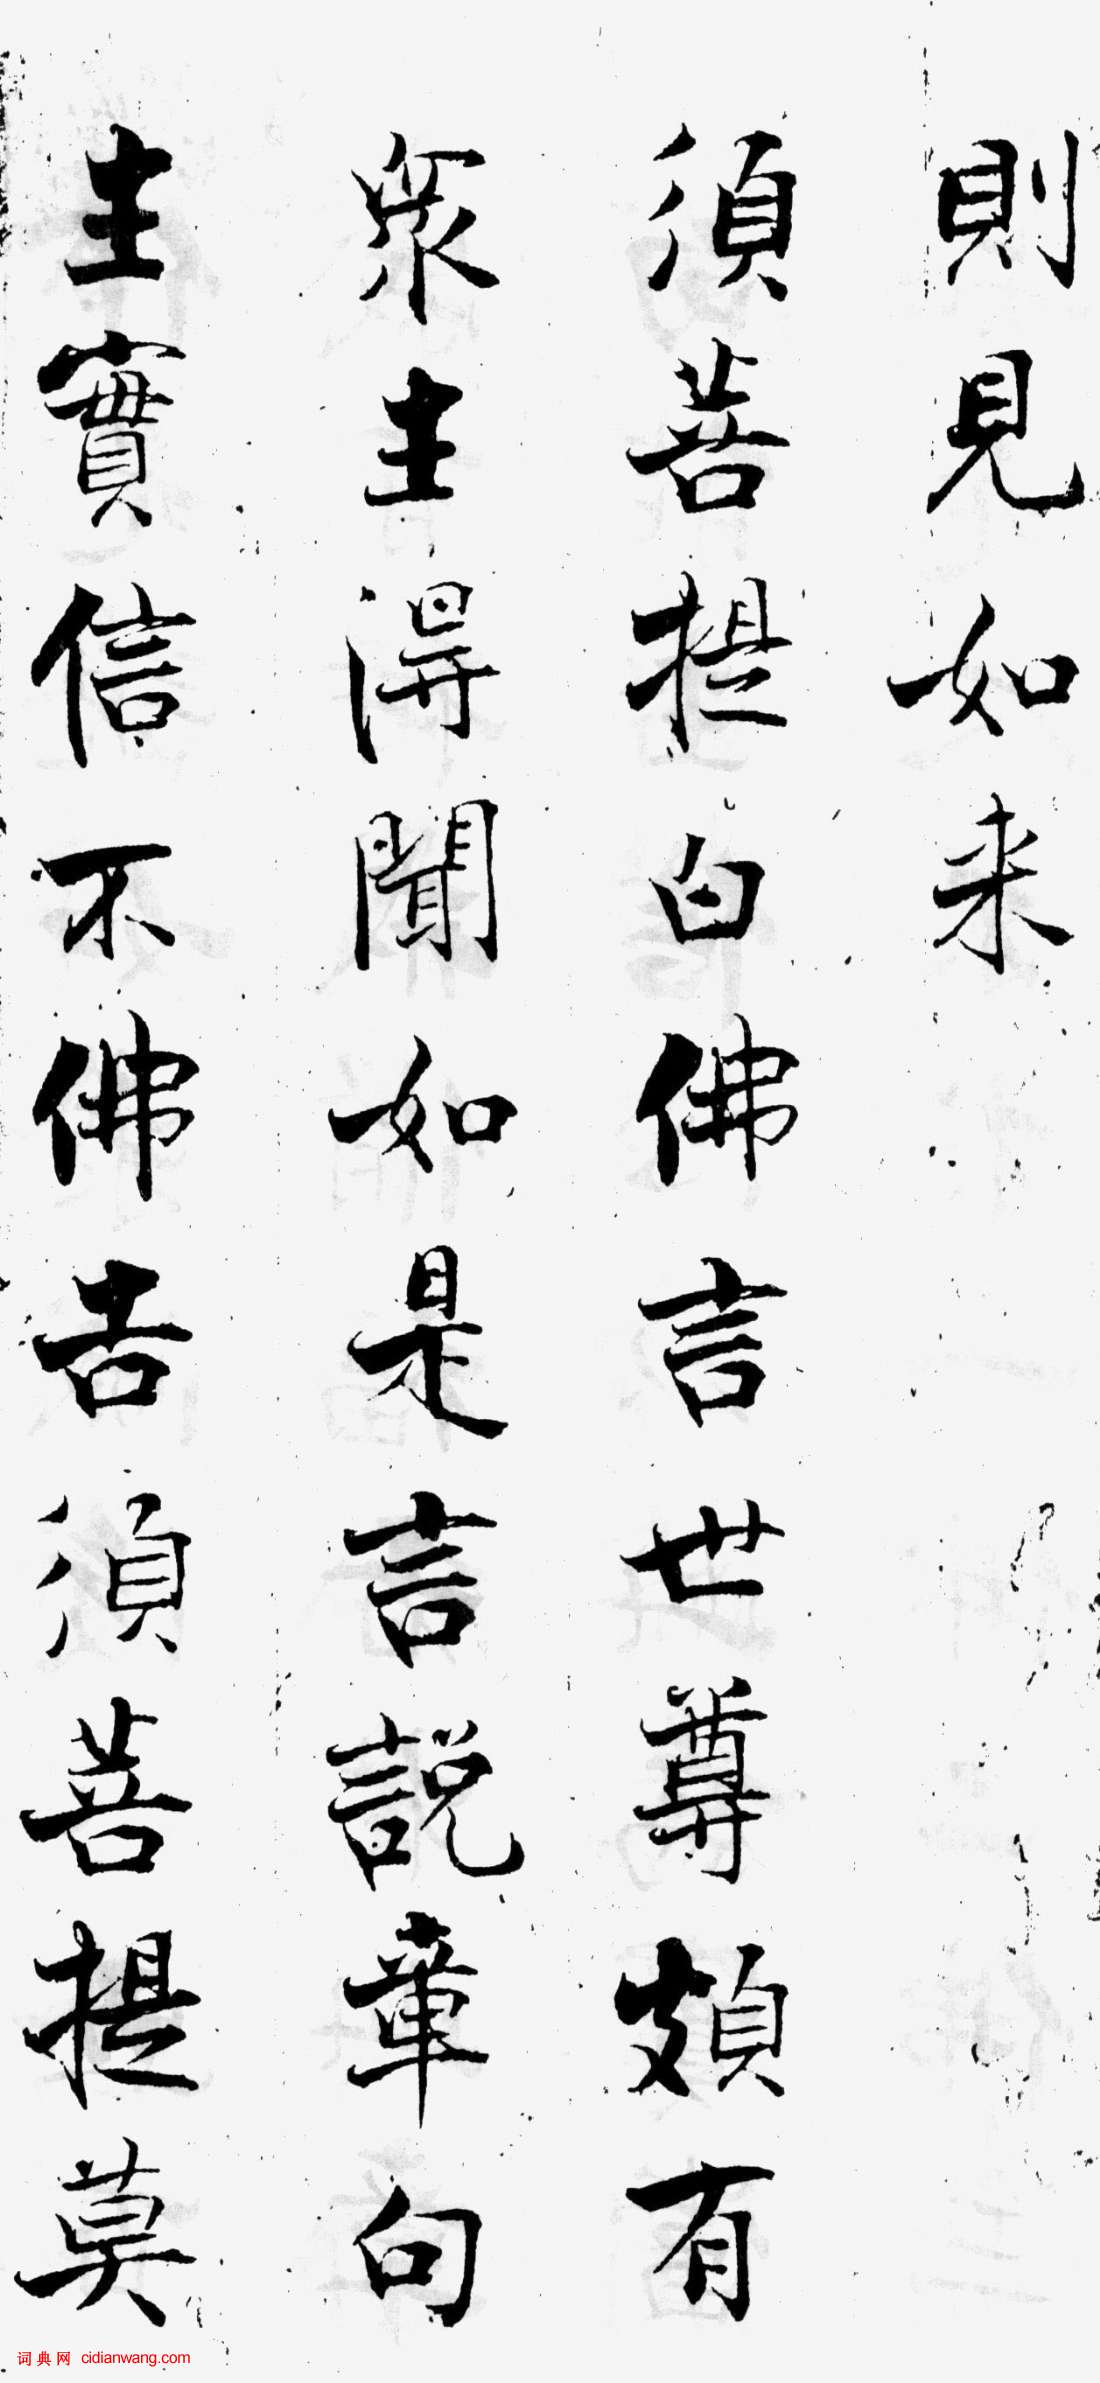 則見如来
須菩提白佛言世尊頗有
衆生得聞如是言説章句
生實信不佛告須菩提莫
词典网 cidianwang.com